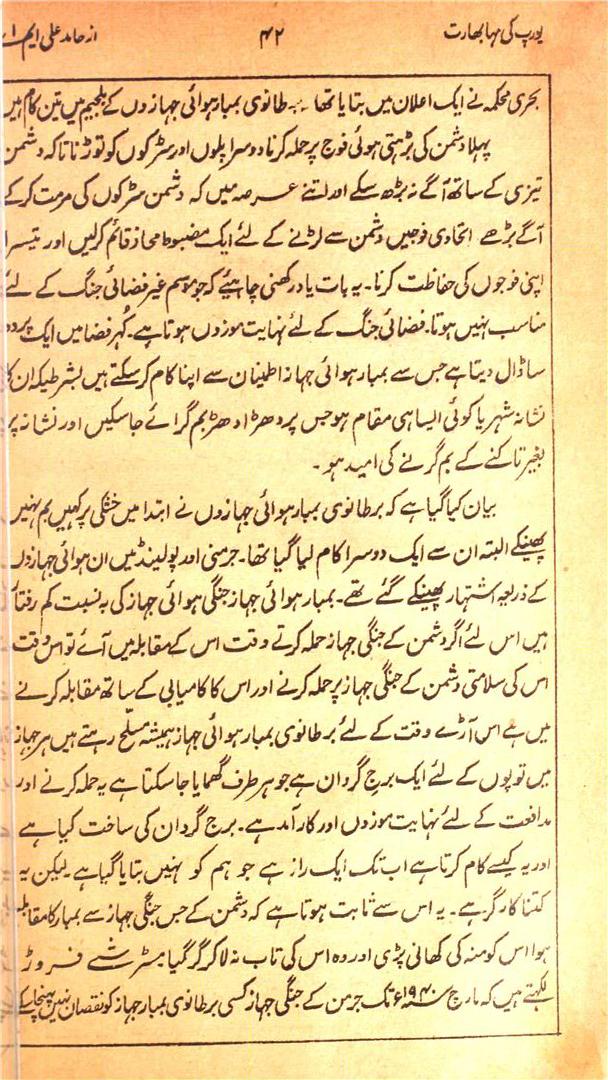 یورپ کی مہا بھارت ۴۲ از حامد علی ایم
بحری محکمہ نے ایک اعلان میں بتایا تھا برطانوی بمبار ہوائی جہازوں کے بلجیم میں تین کام ہیں
پہلا دشمن کی بڑھتی ہوئی فوج پر حملہ کرنا دوسرا پلوں اور سڑکوں کو توڑنا تاکہ دشمن
تیزی کے ساتھ آگے نہ بڑھ سکے اور اتنے عرصہ میں کہ دشمن سڑکوں کی مرمت کر کے
آگے بڑھے اتحادی فوجیں دشمن سے لڑنے کے لئے ایک مضبوط محاذ قائم کرلیں اور تیسرا
اپنی فوجوں کی حفاظت کرنا۔ یہ بات یاد رکھنی چاہیئے کہ جو موسم غیر فضائی جنگ کے لئے
مناسب نہیں ہوتا۔ فضائی جنگ کے لئے نہایت موزوں ہوتا ہے۔ کُہر فضا میں ایک پردہ
سا ڈال دیتا ہے جس سے بمبار ہوائی جہاز اطمینان سے اپنا کام کرسکتے ہیں بشرطیکہ ان کا
نشانہ شہر یا کوئی ایسا ہی مقام ہو جس پر دھڑا دھڑ بم گرائے جاسکیں اور نشانہ پر
بغیر تاکنے کے بم گرنے کی امید ہو۔
بیان کیا گیا ہے کہ برطانوی بمبار ہوائی جہازوں نے ابتدا میں خشکی پر کہیں بم نہیں
پھینکے البتہ ان سے ایک دوسرا کام لیا گیا تھا۔ جرمنی اور پولینڈ میں ان ہوائی جہازوں
کے ذریعہ اشتہار پھینکے گئے تھے۔ بمبار ہوائی جہاز جنگی ہوائی جہاز کی بہ نسبت کم رفتار
ہیں اس لئے اگر دشمن کے جنگی جہاز حملہ کرتے وقت اس کے مقابلہ میں آئے تو اس وقت
اس کی سلامتی دشمن کے جنگی جہاز پر حملہ کرنے اور اس کا کامیابی کے ساتھ مقابلہ کرنے
میں ہے اس آڑے وقت کے لئے برطانوی بمبار ہوائی جہاز ہمیشہ مسلح رہتے ہیں ہر جہاز
میں توپوں کے لئے ایک برج گردان ہے جو ہر طرف گھمایا جاسکتا ہے یہ حملہ کرنے اور
مدافعت کے لئے نہایت موزوں اور کار آمد ہے۔ برج گردان کی ساخت کیا ہے
اور یہ کیسے کام کرتا ہے اب تک ایک راز ہے جو ہم کو نہیں بتایا گیا ہے لیکن یہ
کتنا کارگر ہے۔ یہ اس سے ثابت ہوتا ہے کہ دشمن کے جس جنگی جہاز سے بمبار کا مقابلہ
ہوا اس کو منہ کی کھانی پڑی اور وہ اس کی تاب نہ لاکر گر گیا مسٹر شے فروڑ
لکھتے ہیں کہ مارچ ۱۹۴۰ء تک جرمن کے جنگی جہاز کسی برطانوی بمبار جہاز کو نقصان نہیں پہنچا سکے